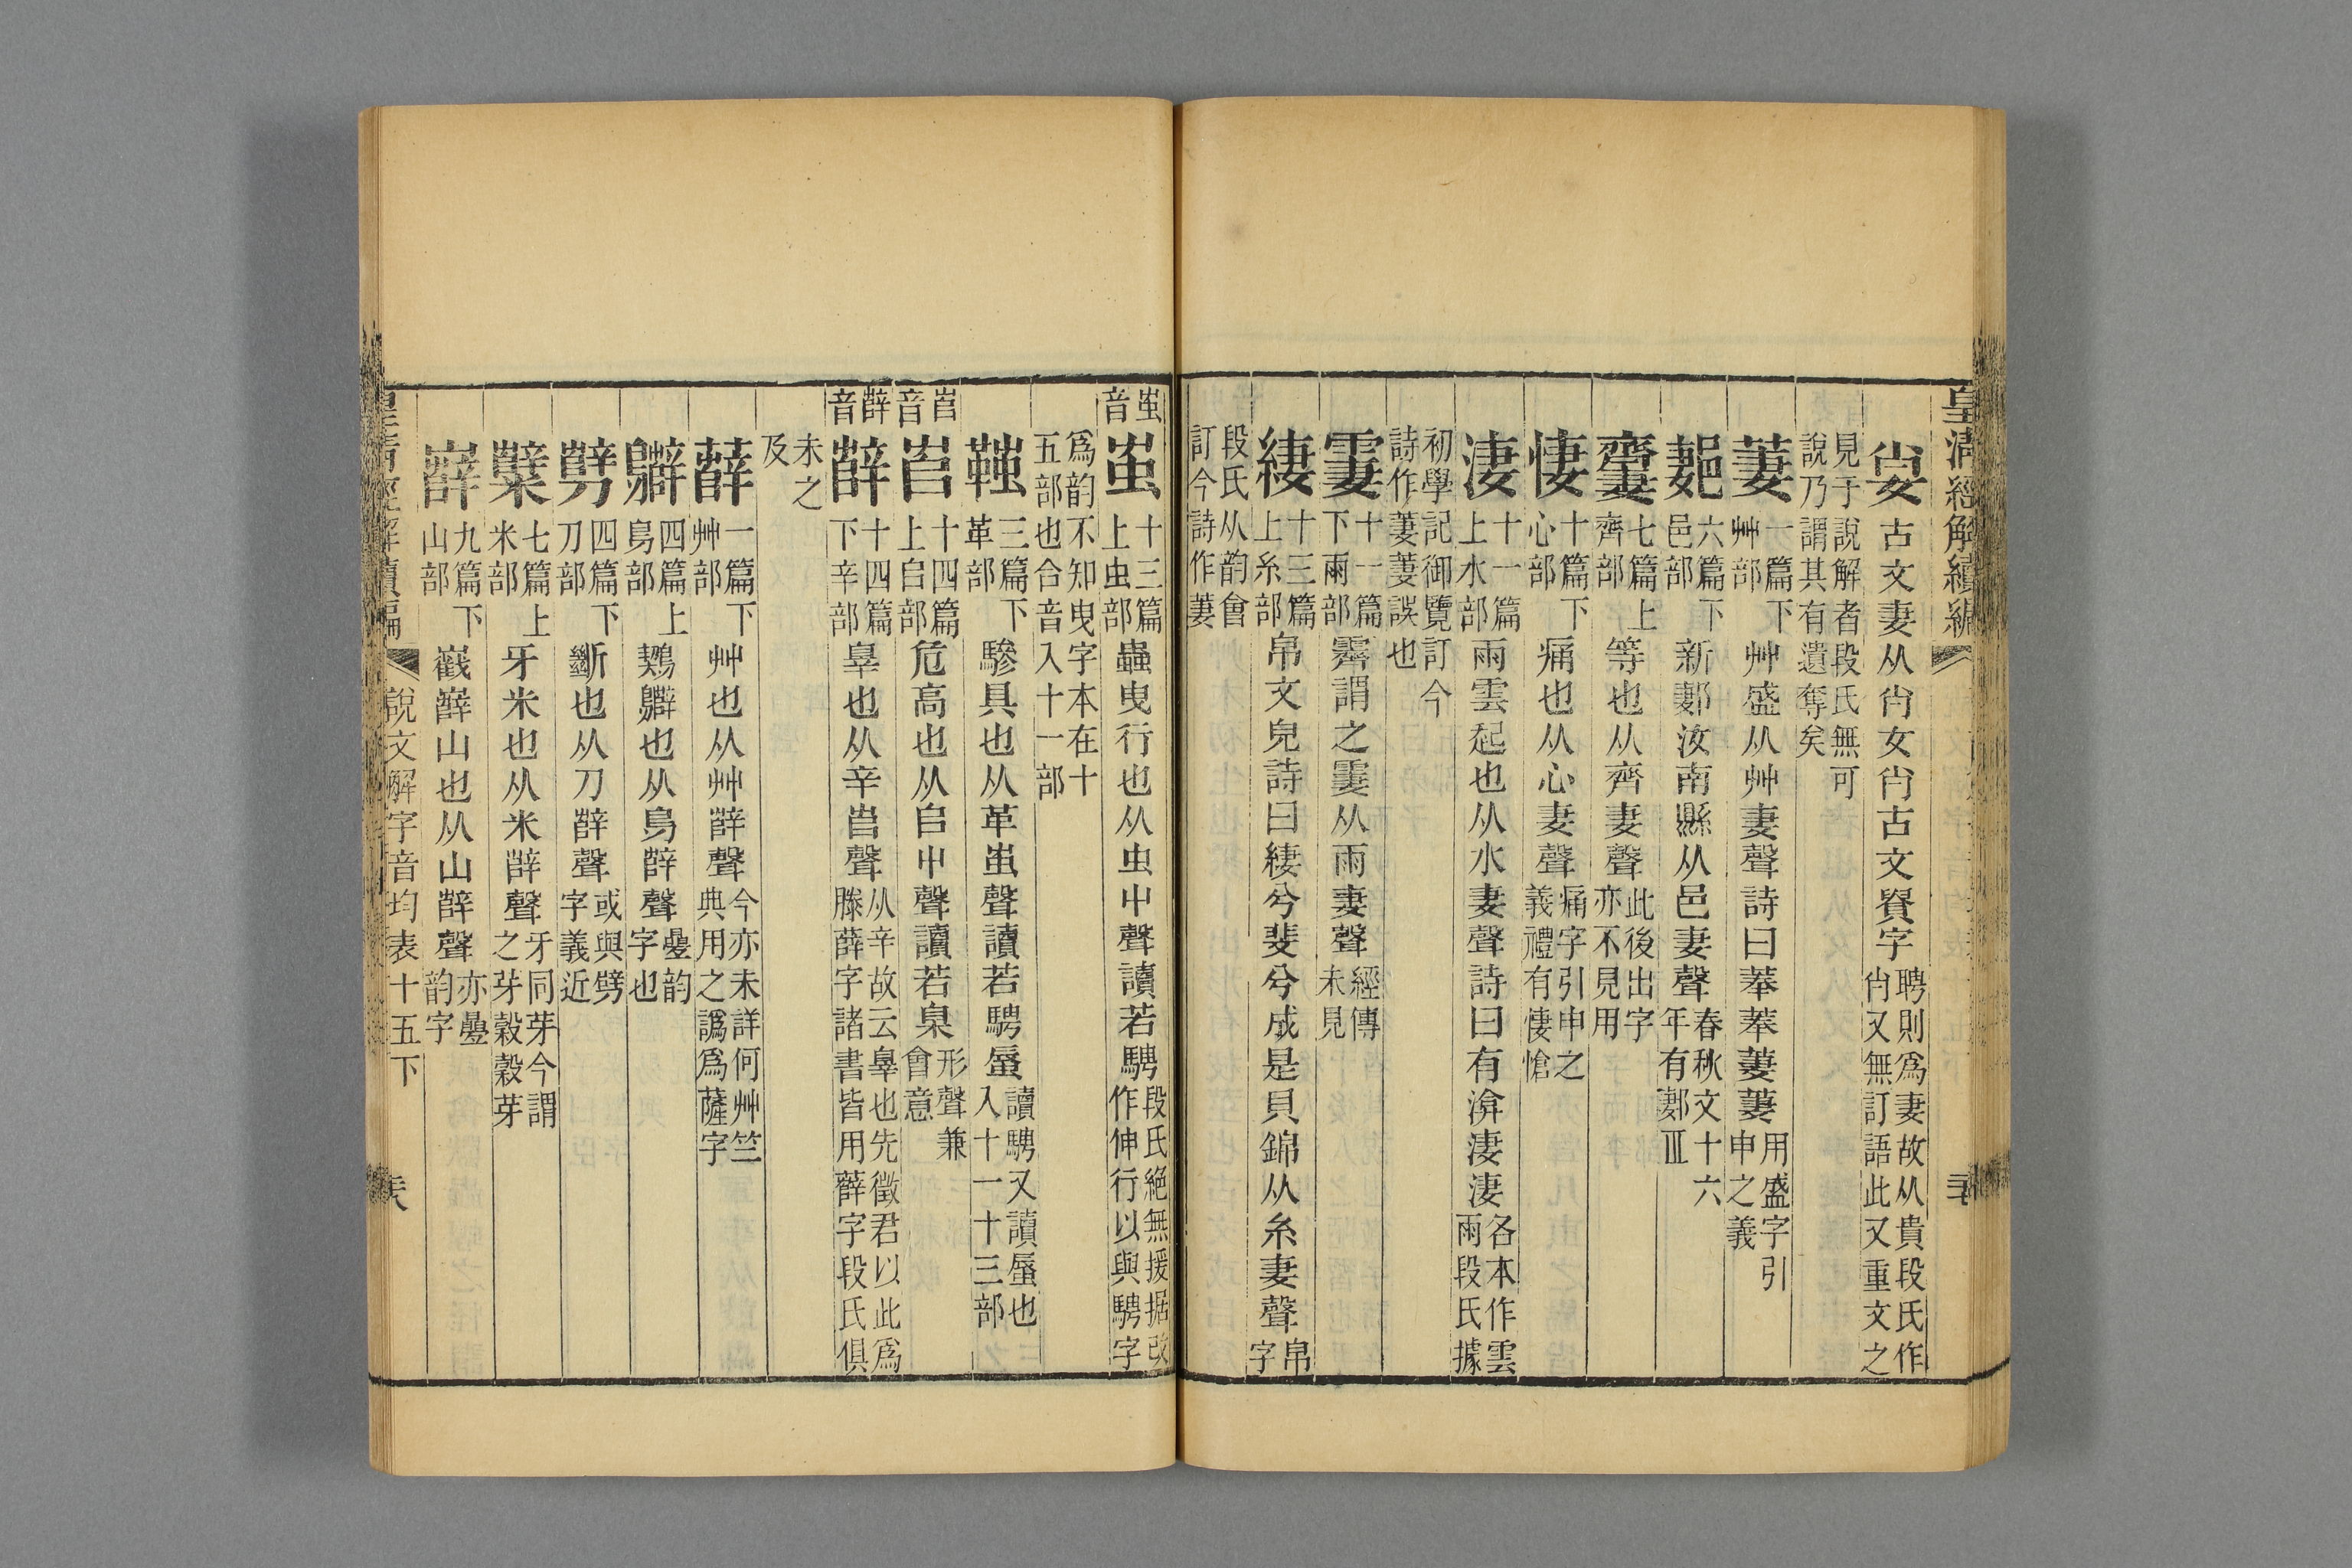 皇清經解續編
㚰古文妻从㞑女㞑古文貴字聘則爲妻故从貴段氏作㞑又無訂語此又重文之
見于說解者段氏無可說乃謂其有遺奪矣
萋一篇下艸部艸盛从艸妻聲詩曰菶菶萋萋用盛字引申之義
郪六篇下邑部新郪汝南縣从邑妻聲春秋文十六年有郪丘
齎七篇上齊部等也从齊妻聲此後出字亦不見用
悽十篇下心部痛也从心妻聲痛字引申之義禮有悽愴
淒十一篇上水部雨雲起也从水妻聲詩曰有渰淒淒各本作雲雨段氏據
初學記御覽訂今詩作萋萋誤也
霋十一篇下雨部霽謂之霋从雨妻聲經傳未見
緀十三篇上糸部帛文皃詩曰緀兮斐兮成是貝錦从糸妻聲帛字
段氏从韵會訂今詩作萋
蚩音
蚩十三篇上虫部蟲曳行也从虫屮聲讀若騁段氏絕無援据改作伸行以與騁字
爲韵不知曳字本在十五部也合音入十一部
三篇下革部驂具也从革蚩聲讀若騁蜃讀騁又讀蜃也入十一十三部
𡴎音
𡴎十四篇上𠂤部危高也从𠂤屮聲讀若臬形聲兼會意
辥音
辥十四篇下辛部辠也从辛𡴎聲从辛故云辠也先徵君以此爲滕薛字諸書皆用薛字段氏俱
未之及
薛一篇下艸部艸也从艸辥聲今亦未詳何艸竺典用之譌爲薩字
四篇上鳥部鷞也从鳥辥聲疊韵字也
劈四篇下刀部斷也从刀辥聲或與劈字義近
糱七篇上米部牙米也从米辥聲牙同芽今謂之芽穀穀芽
嶭九篇下山部巀嶭山也从山辥聲亦疊韵字
皇清經解續編 說文解字音均表十五下